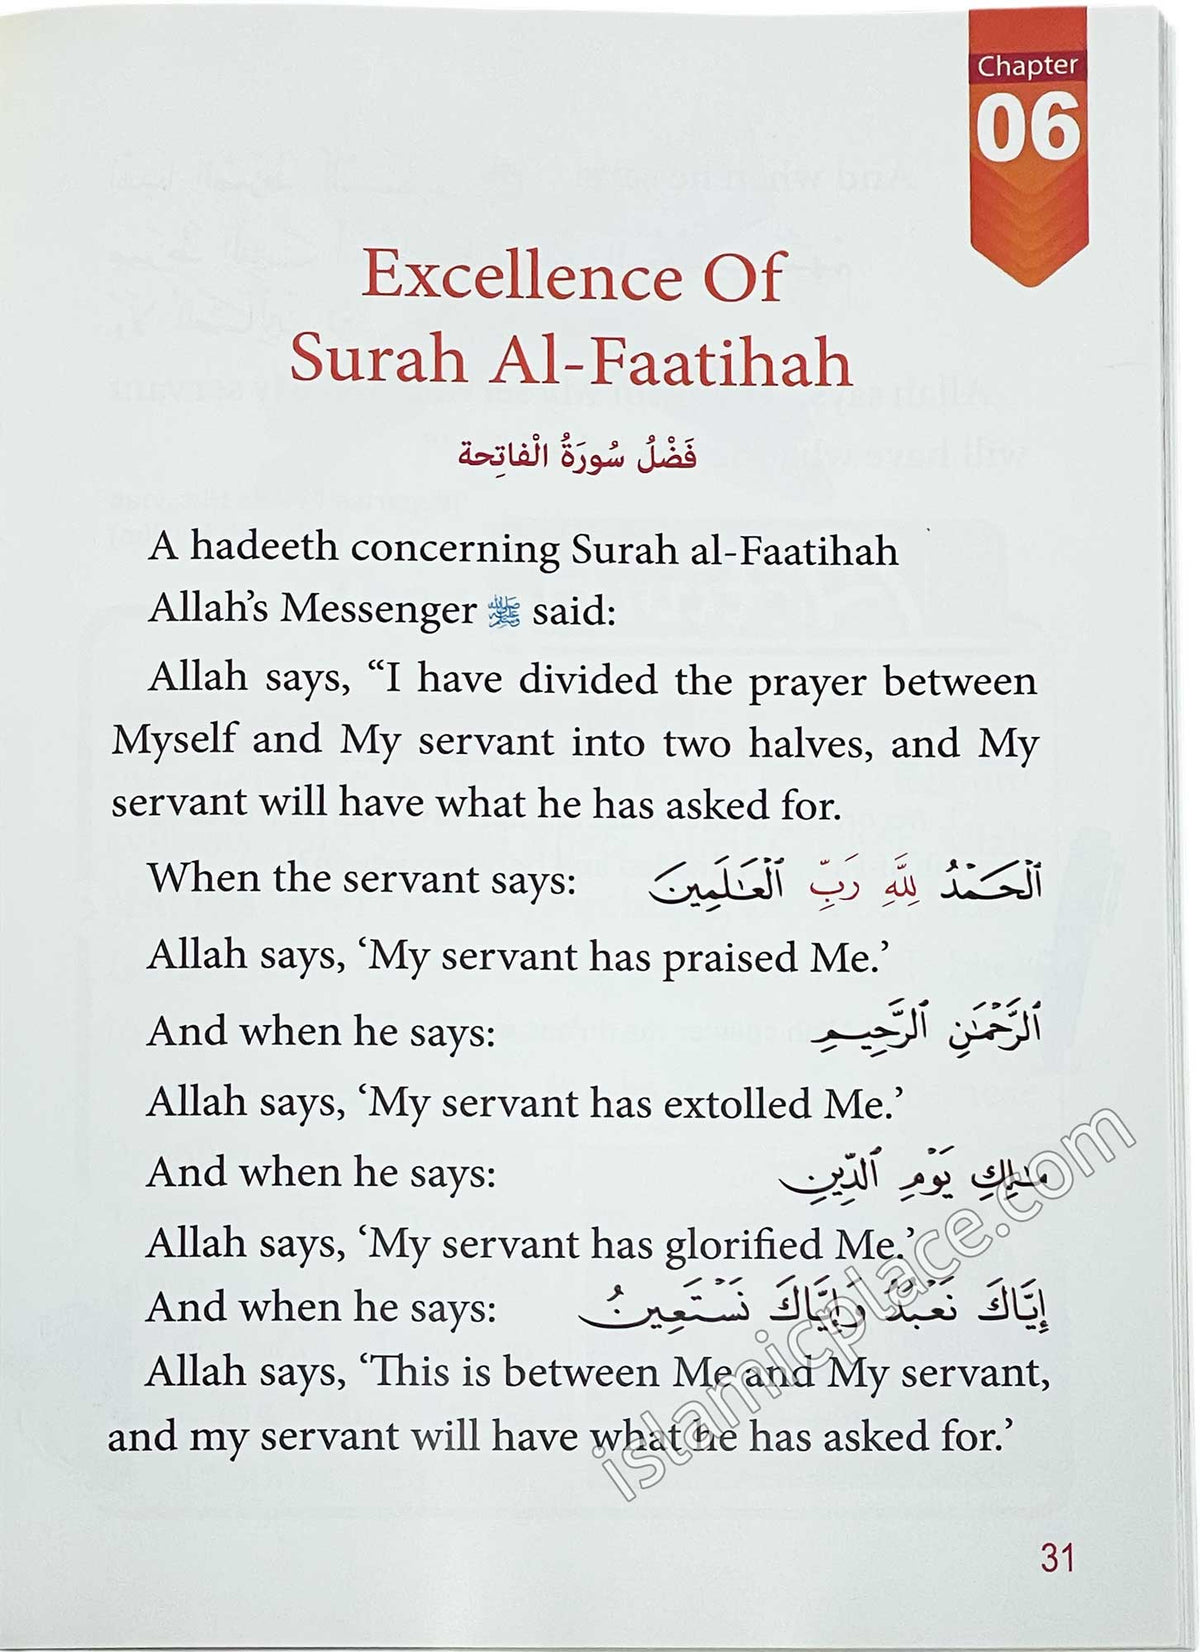 Chapter
06
Excellence Of
Surah Al-Faatihah
فَضْلُ سُورَةُ الْفاتِحة
A hadeeth concerning Surah al-Faatihah
Allah’s Messenger ﷺ said:
Allah says, “I have divided the prayer between
Myself and My servant into two halves, and My
servant will have what he has asked for.
When the servant says: ٱلْحَمْدُ لِلَّهِ رَبِّ ٱلْعَـٰلَمِينَ
Allah says, ‘My servant has praised Me.’
And when he says: ٱلرَّحْمَـٰنِ ٱلرَّحِيمِ
Allah says, ‘My servant has extolled Me.’
And when he says: مَـٰلِكِ يَوْمِ ٱلدِّينِ
Allah says, ‘My servant has glorified Me.’
And when he says: إِيَّاكَ نَعْبُدُ وَإِيَّاكَ نَسْتَعِينُ
Allah says, ‘This is between Me and My servant,
and my servant will have what he has asked for.’
islamicplace.com
31